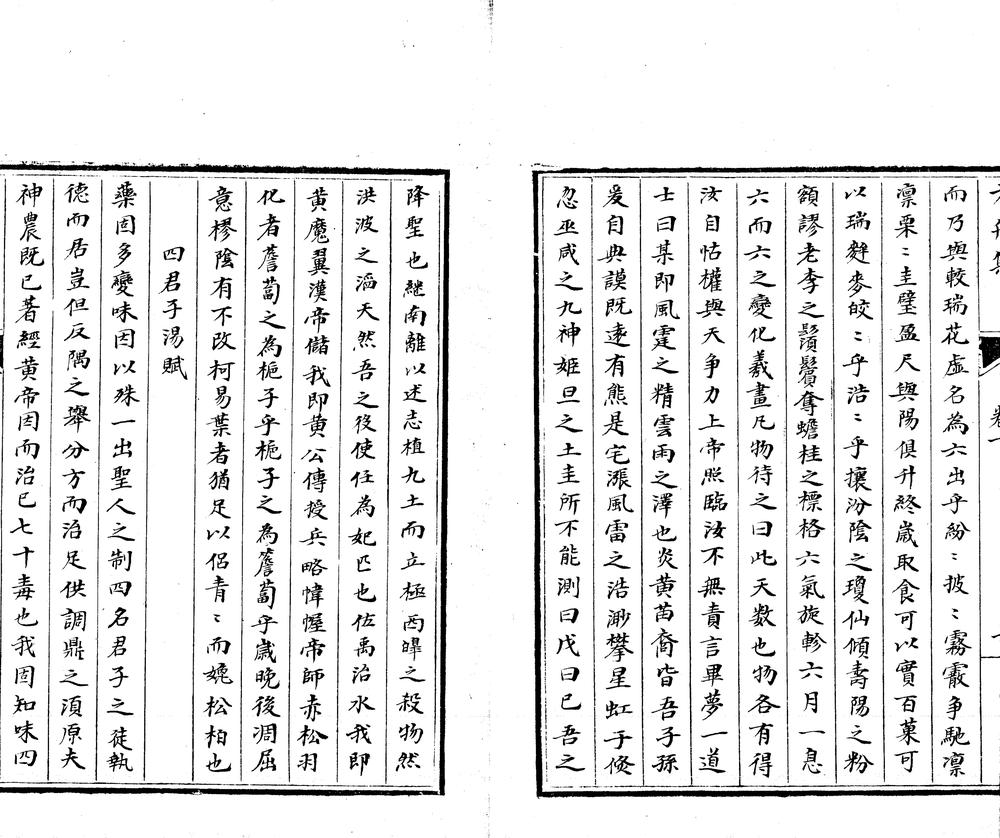 而乃與較瑞花虛名為六出乎紛〻披〻霧霰争馳凛
凛栗〻圭璧盈尺與陽俱升終歲取食可以實百菓可
以瑞麰麥皎〻乎浩〻乎攘汾陰之瓊仙傾壽陽之粉
額謬老李之鬚鬢奪蟾桂之標格六氣旋軫六月一息
六而六之變化羲畫凡物待之曰此天数也物各有得
汝自怙權與天争力上帝照臨汝不無責言畢夢一道
士曰某即風霆之精雲雨之澤也炎黄苗裔皆吾子孫
爰自典謨既逺有熊是宅漲風雷之浩渺攀星虹于倏
忽巫咸之九神姬旦之土圭所不能測曰戊曰巳吾之
降聖也継南離以述志植九土而立極西皥之殺物然
洪波之滔天然吾之後使任為妃匹也佐禹治水我即
黄魔翼漢帝儲我即黄公傳授兵略幃幄帝師赤松羽
化者薝蔔之為梔子乎梔子之為薝蔔乎歲晚後凋屈
意樛陰有不改柯易葉者猶足以侣青〻而媲松柏也
四君子湯賦
藥固多變味因以殊一出聖人之制四名君子之徒執
德而居豈但反隅之舉分方而治足供調鼎之湏原夫
神農既已著經黄帝因而治巳七十毒也我固知味四